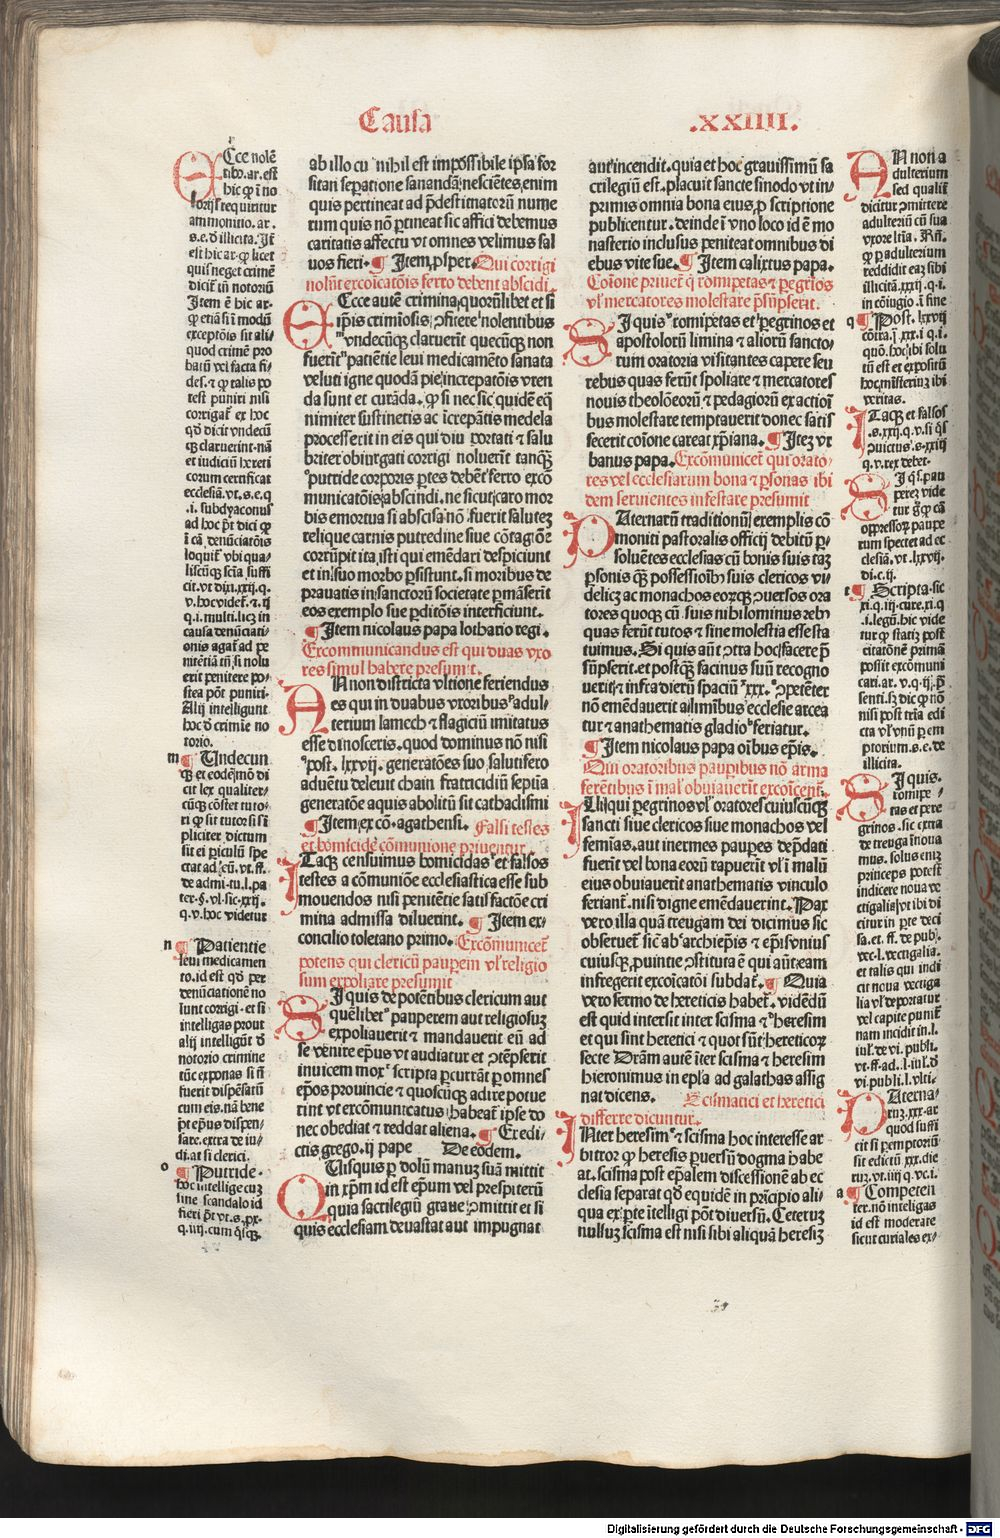 Causa
.XXIIII.
Ecce nolē
tibꝰ.ar.est
hic ꝙ ī no
torijs requiritur
ammonitio.ar.
s.e.d̄ illicita.Itē
est hic ar.ꝙ licet
quis neget crimē
dicit̄ tn̄ notoriū
Item ē hic ar.
ꝙ etiā si ī modū
exceptōis sit ali
quod crimē pro
batū vel facta fi
des.⁊ ꝙ talis po
test puniri nisi
corrigat̄ ex hoc
qd̓ dicit vndecū
qꝫ claruerint.nā
et iudiciū hereti
corum certificat
ecclesiā.vt.s.e.q
.i.subdyaconus
ad hoc p̄t dici ꝙ
ī cā denūciatōis
loquit̄ vbi qua/
liscūqꝫ scīa suffi
cit.vt dixi.xxij.q.
v.hoc videt̄.⁊.ij
q.i.multi.licꝫ in
causa denūciati/
onis agat̄ ad pe
nitētiā tn̄ si nolu
erit penitere po/
stea pōt puniri.
Alij intelligunt
hoc d̓ crimīe no
torio.
m ¶ Undecun
qꝫ et eodē mō di
cit lex qualiter/
cūqꝫ cōstet tuto/
ri ꝙ sit tutor si sī
pliciter dictum
sit ei ꝑiculū spe
ctat ad eū.vt.ff.
de admi.tu.l.pa
ter.§.vl.sic.xxij.
q.v.hoc videtur
n ¶ Patientie
leui medicamen
to.id est qd̓ per
denūciationē no
lunt corrigi.et si
intelligas prout
alij intelligūt d̓
notorio crimine
tūc exponas si ff
fuerit dispēsatū
cum eis.nā bene
p̄t epūs dispen/
sare.extra de iu/
di.at si clerici.
o ¶ Putride.
hoc intellige cuꝫ
sine scandalo id
fieri p̄t vt.s.ꝓx.
q.iiij.cum qͥsqꝫ.
ab illo cu nihil est impossibile ipsa for
sitan seꝑatione sanandā.nesciētes enim
quis pertineat ad p̄destinatorū nume
rum quis nō ꝑtineat sic affici debemus
caritatis affectu vt omnes velimus sal
uos fieri.¶ Item ꝓsper.Qui corrigi
nolūt excōicatōnis ferro debent abscidi.
Ecce autē crimina quorūlibet et si
ip̄is crimīosis ↄfitere nolentibus
vndecūqꝫ claruerīt quecūqꝫ non
fuerīt patiētie leui medicamēto sanata
veluti igne quodā pie increpatōis vren
da sunt et curāda.ꝙ si nec sic quidē eq̄
nimiter sustinetis ac īcrepātis medela
processerit in eis qui diu portati ⁊ salu
briter obiurgati corrigi noluerūt tanqꝫ
putride corporis ꝑtes debēt ferro excō
municatōis abscindi.ne sicut caro mor
bis emortua si abscisa nō fuerit salutez
relique carnis putredine siue cōtagiōe
corrūpit ita isti qui emēdari despiciunt
et in suo morbo ꝑsistunt.si moribus de
prauatis in sanctorū societate ꝑmāserīt
eos exemplo sue ꝑditōis interficiunt.
¶ Item nicolaus papa lothario regi.
Excommunicandus est qui duas vxo
res simul habere presumit.
AN non districta vltione feriendus
es qui in duabus vxoribus adul/
terium lamech ⁊ flagiciū imitatus
esse dinosceris.quod dominus nō nisi
post.lxxvij.generatōes suo salutifero
aduētu deleuit chain fratricidiū septīa
generatōe aquis abolitū sit cathaclismi
¶ Item ex cō.agathensi. Falsi testes
et homicide cōmunione priuentur
ITaqꝫ censuimus homicidas et falsos
testes a cōmuniōe ecclesiastica esse sub
mouendos nisi penitētie satisfactōe cri
mina admissa diluerint.¶ Item ex
concilio toletano primo.Excōmunicet̄
potens qui clericū pauꝑem vl̓ religio
sum expoliare presumit
SI quis de potētibus clericum aut
quēlibet pauperem aut religiosuꝫ
expoliauerit ⁊ mandauerit eū ad
se venire epūs vt audiatur et ↄtēpserit
inuicem mox scripta ꝑcurrāt ꝑ omnes
ep̄os prouincie ⁊ quoscūqꝫ adire potue
rint vt excōmunicatus habeat̄ ipse do
nec obediat ⁊ reddat aliena.¶ Ex edi/
ctis grego.ij pape De eodem.
QUisquis ꝑ dolū manuꝫ suā mittit
in xp̄m id est ep̄um vel prespiterū
quia sacrilegiū graue ↄmittit et si
quis ecclesiam deuastat aut impugnat
aut incendit.quia et hoc grauissimū sa
crilegiū est.placuit sancte sinodo vt in/
primis omnia bona eius ꝓscriptione
publicentur.deinde ī vno loco id ē mo
nasterio inclusus peniteat omnibus di
ebus vite sue.¶ Item calixtus papa.
Cōīone priuet̄ q̄ romipetas ⁊ ꝑegrīos
vl̓ mercatores molestare p̄sūpserit.
SI quis romipetas et ꝑegrinos et
apostolorū limina ⁊ aliorū sancto/
rum oratoria visitantes capere seu
rebus quas ferūt spoliare ⁊ mercatores
nouis theolōeorū ⁊ pedagiorū exactiōi
bus molestare temptauerit donec satis
fecerit cōīone careat xp̄iana.¶ Iteꝫ vr
banus papa.Excōmunicet̄ qui orato/
res vel ecclesiarum bona ⁊ ꝑsonas ibi
dem seruientes infestare presumit
PAternarū traditionū exemplis cō
moniti pastoralis officij debitū ꝑ/
soluētes ecclesias cū bonis suis taꝫ
ꝑsonis qꝫ possessiōibꝰ suis clericos vi/
delicꝫ ac monachos eorūqꝫ ↄuersos ora
tores quoqꝫ cū suis nihilominus rebꝰ
quas ferūt tutos ⁊ sine molestia esse sta
tuimus.Si quis aūt ↄtra hoc facere p̄
sūpserit.et postqꝫ facinus suū recogno
uerit ⁊ infra dierū spaciū xxx.ↄpetēter
nō emēdauerit a līmibus ecclesie arcea
tur ⁊ anathematis gladio feriatur.
¶ Item nicolaus papa oībus ep̄is.
Qui oratoribus pauꝑibus nō arma
ferētibus ī mal̓ obuiauerīt excōīcent̄.
ILli qui ꝑegrinos vl̓ oratores cuiuscūqꝫ
sancti siue clericos siue monachos vel
femias.aut inermes pauꝑes dep̄dati
fuerīt vel bona eorū rapuerīt vl̓ ī malū
eius obuiauerīt anathematis vinculo
feriant̄.nisi digne emēdauerint.Pax
vero illa quā treugam dei dicimus sic
obseruet̄ sic ab archiep̄is ⁊ ep̄is vnius
cuiusqꝫ ꝓuintie ↄstituta ē qui aūt eam
infregerit excōicatōi subdat̄.¶ Quia
vero sermo de hereticis habet̄.vidēdū
est quid intersit inter scisma ⁊ heresim
et qui sint heretici ⁊ quot sūt hereticoꝝ
secte Dr̄am autē īter scisma ⁊ heresim
hieronimus in ep̄la ad galathas assig
nat dicens. Scismatici et heretici
differre dicuntur.
INter heresim ⁊ scisma hoc interesse ar
bitror ꝙ heresis ꝑuersū dogma habe
at.scisma post ep̄alem discessionē ab ec
clesia separat qd̓ equidē in prīcipio ali/
qua ex ꝑte ītelligi pōt diuersū.Ceteruꝫ
nulluꝫ scisma est nisi sibi aliquā heresiꝫ
AN non a
dulterium
sed qualit̄
dicitur ↄmittere
adulteriū cū sua
vxore ltīa.Rn̄.
ꝙ ꝑ adulterium
reddidit eaꝫ sibi
illicitā.xxxij.q.i.
in cōiugio.ī fine
q ¶ Post.lxxvij
cōtra.j̄ xxx.i q.i.
quō.hoc.ibi solu
tū est et expositū
hoc misteriuꝫ ibi
veritas.
ITaqꝫ et falsos
.s.xxij.q.v.si qͥs
ↄuictus.s.xxiij
q.v.rex debet.
SI qͥs.pau
perez vide
tur g̓ ꝙ cā
oppressoꝝ pauꝑe
rum spectet ad ec
clesiā.vt.lxxvij.
di.c.ij.
r ¶ Scripta.sic
xi.q.iij.cure.xi.q
.i.legū.hic vide
tur ꝙ statiꝫ post
citatōnē primā
possit excōmuni
cari.ar.v.q.ij.p̄
senti.sꝫ dic ꝙ nō
nisi post tria edi
cta vl̓ vnū ꝑem
ptorium.s.e.de
illicita.
SI quis.
romipe/
tas et pere
grinos.sic extra
de treuga īnoua
mus.solus eniꝫ
princeps potest
indicere noua ve
ctigalia.vt ibi di
citur in ꝑte deci
sa.et.ff.de publ.
vec.l.vectigalia.
et talis qui indi
cit noua vectiga
lia vl̓ deportatur
vel capite punit̄
nam incidit in.l.
iul̓.de vi.publi.
vt.ff.ad.l.iul̓.d̓
vi.publi.l.vlti.
PAterna/
ruꝫ.xxx.ar
quod suffi
cit si ꝑemptoriū
sit edictū.xxx.die
ruꝫ.vt.iiij q.vc.i.
a ¶ Competen
ter.nō inteligas
id est moderate
sicut curiales ex/
Digitalisierung gefördert durch die Deutsche Forschungsgemeinschaft - DFG